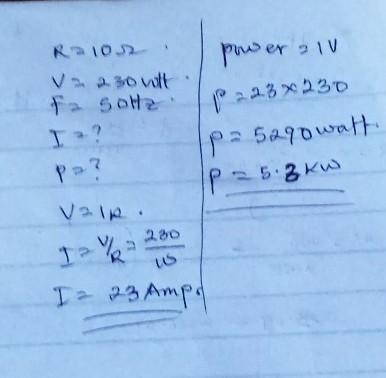 R = 10Ω.
V = 230 volt.
F = 50Hz.
I = ?
P = ?
V = IR.
I = V/R = 230/10
I = 23 Amp.
power = IV
P = 23 × 230
P = 5290 watt.
P = 5.3 KW